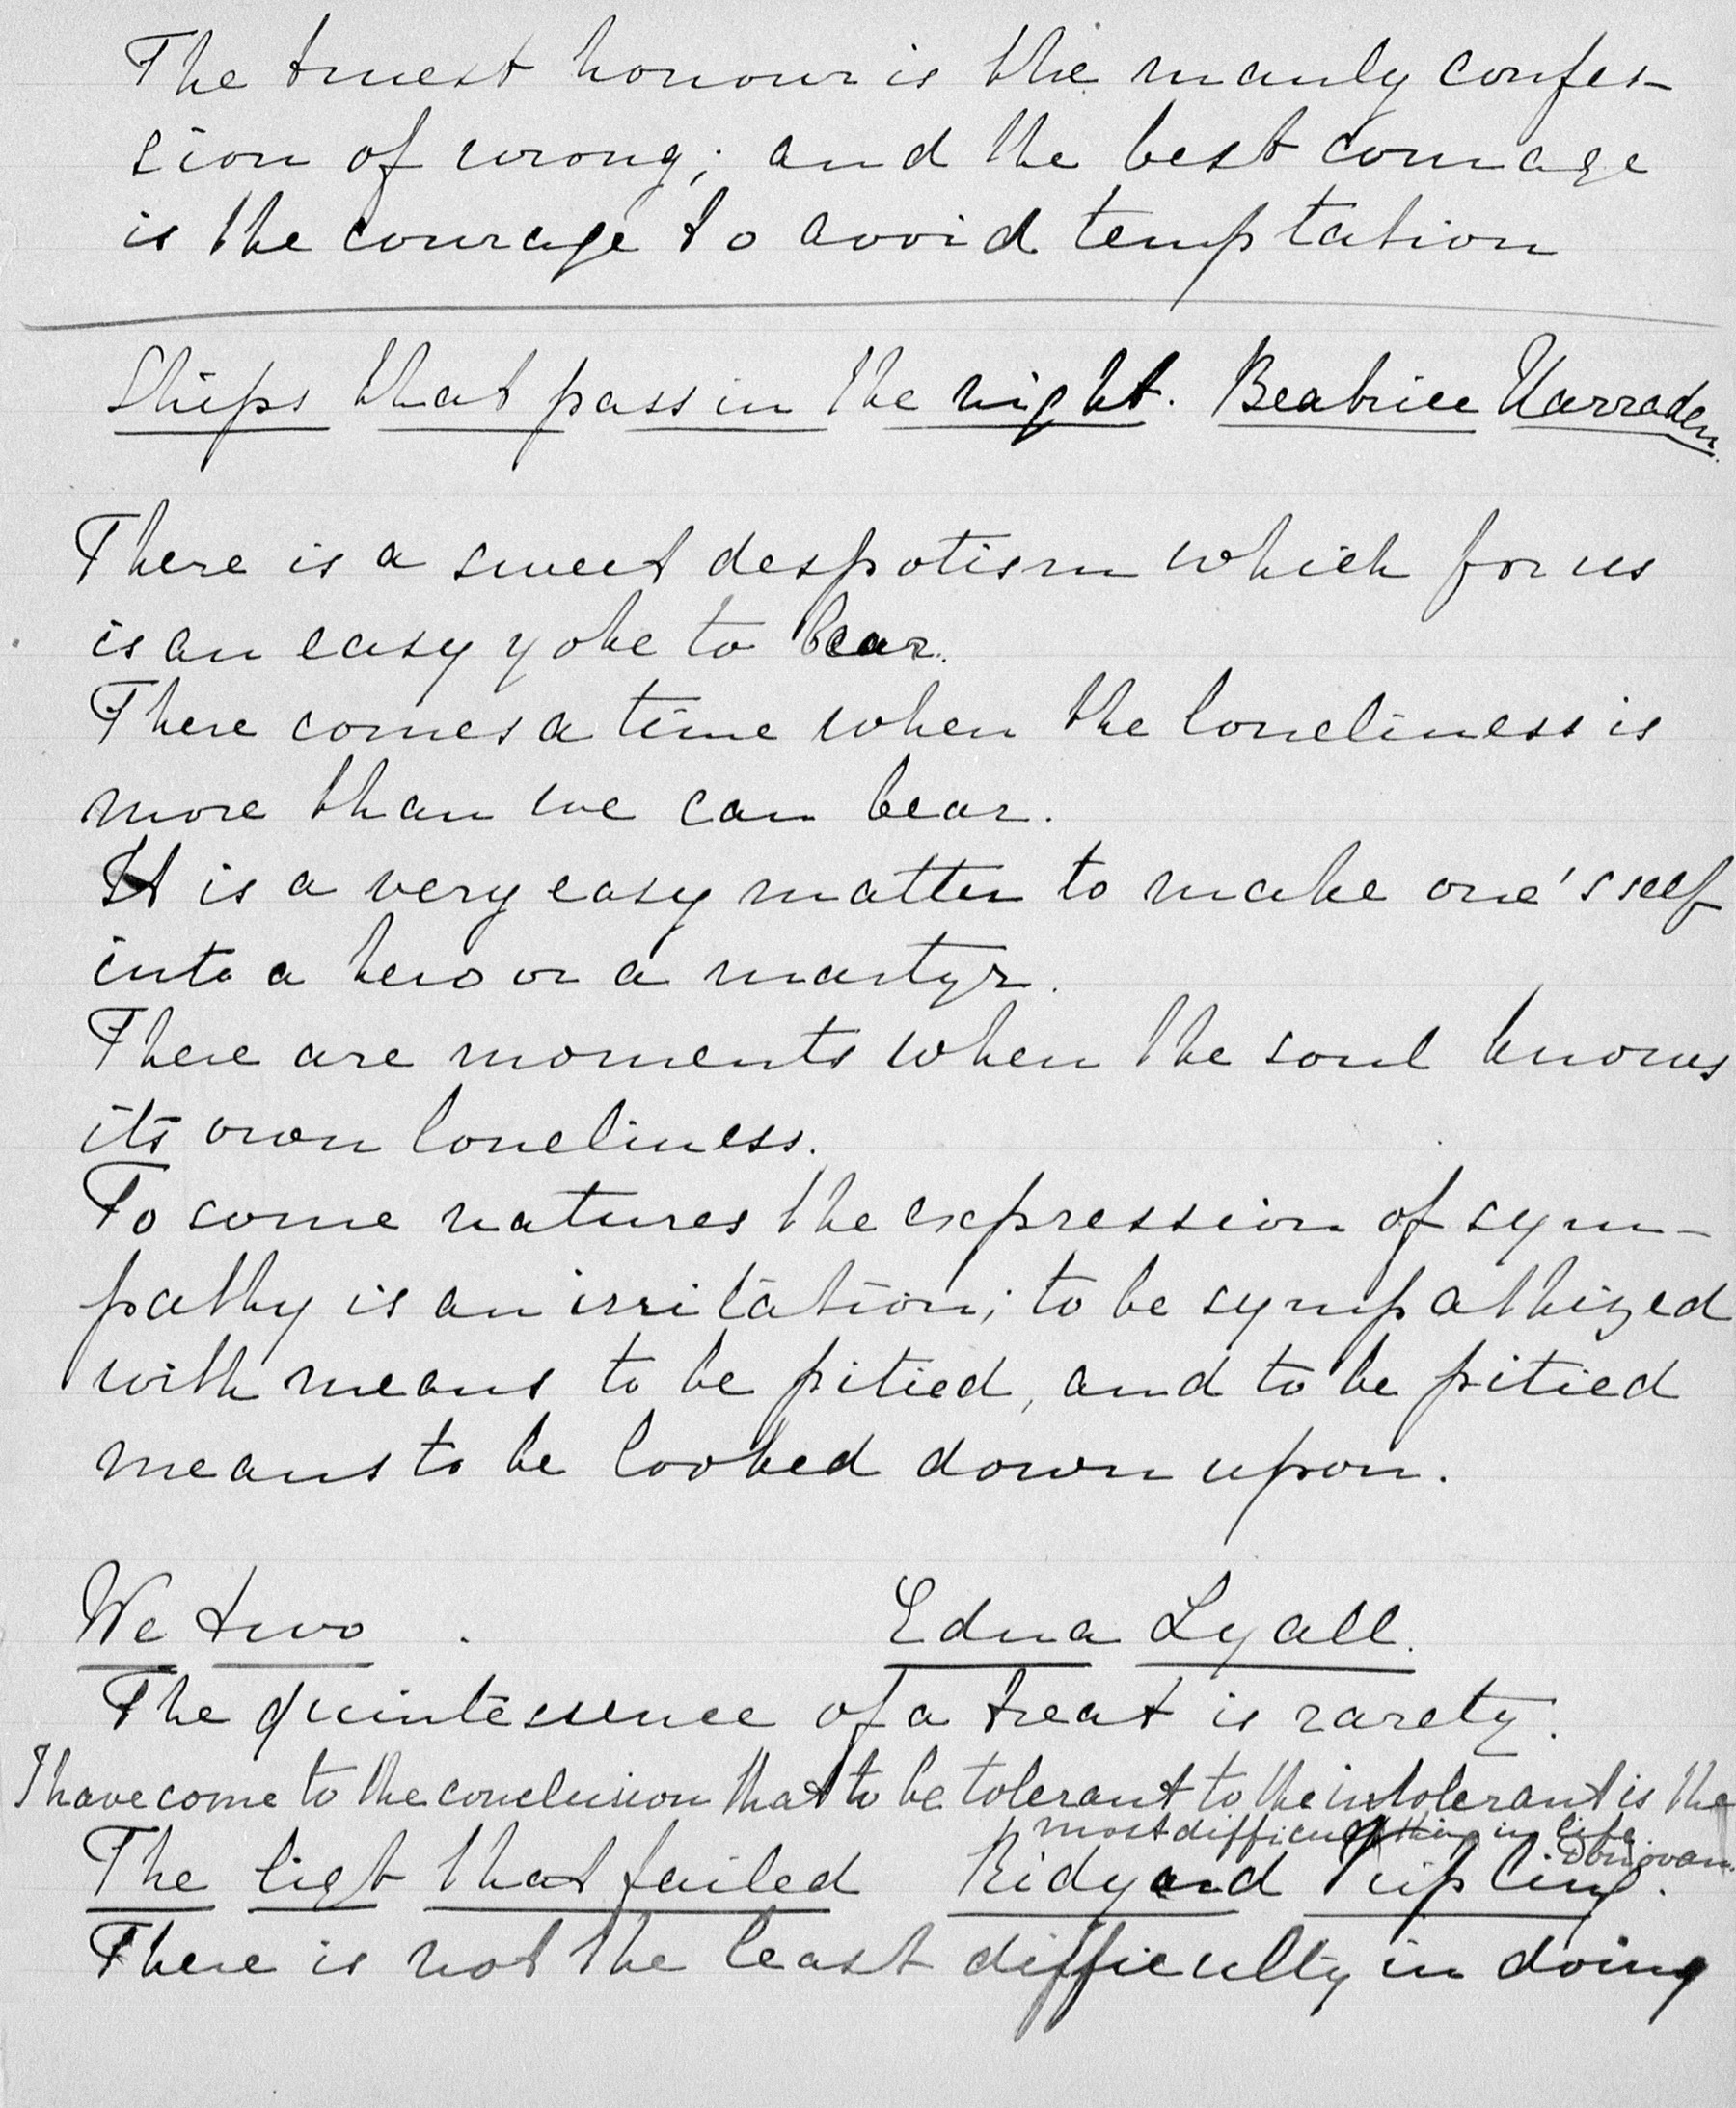 The truest honour is the manly confes-
sion of wrong; and the best courage
is the courage to avoid temptation
Ships that pass in the night. Beatrice Harraden.
There is a sweet despotism which for us
is an easy yoke to bear.
There comes a time when the loneliness is
more than we can bear.
It is a very easy matter to make one's self
into a hero or a martyr.
There are moments when the soul knows
its own loneliness.
To some natures the expression of sym-
pathy is an irritation; to be sympathized
with means to be pitied, and to be pitied
means to be looked down upon.
We two. Edna Lyall.
The quintessence of a treat is rarety.
I have come to the conclusion that to be tolerant to the intolerant is the
most difficult thing in life.
Donovan.
The light that failed Ridyard Kipling.
There is not the least difficulty in doing